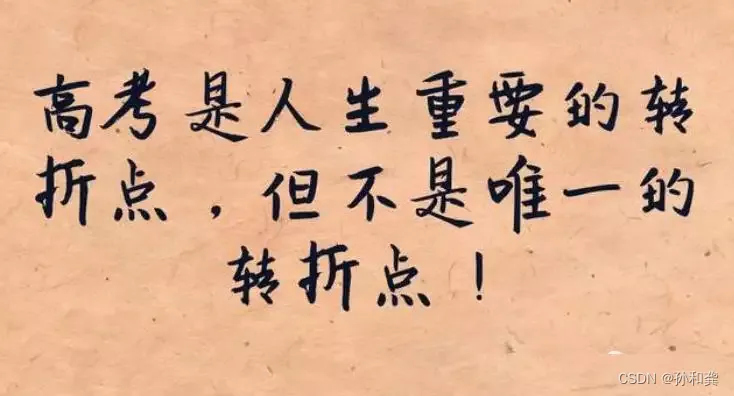 高考是人生重要的转
折点，但不是唯一的
转折点！
CSDN @孙和龚